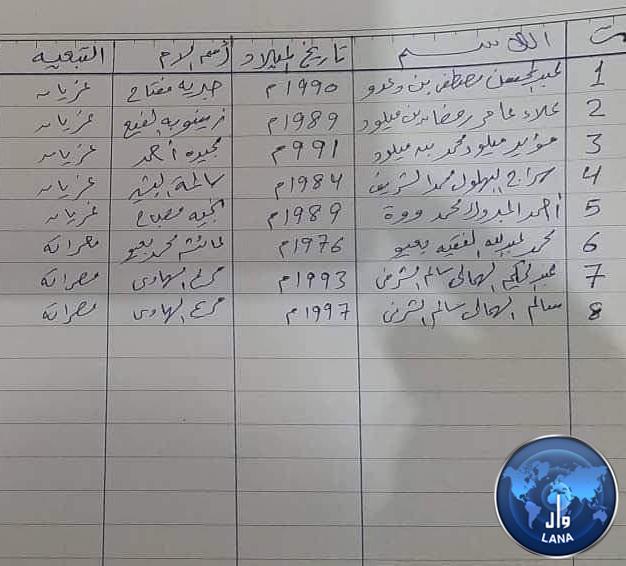 ت الاسم تاريخ الميلاد أسم الام التبعيه
1 عبدالمحسن مصطفى بن وعدو 1990م جبريه مفتاح غريان
2 علاء عامر رمضان بن ميلود 1989م زينوبه الفقيع غريان
3 مؤيد ميلود محمد بن ميلود 991م مجيده أحمد غريان
4 سراج البهلول محمد الشريف 1984م سالمة البشير غريان
5 أحمد المبروك محمد 1989م مصباح غريان
6 محمد عبدالله الفقيه يعيو 1976م عائشه محمد يعيو مصراته
7 عبدالحكيم الهمالي سالم الشرفي 1993م مريم الهادي مصراته
8 سالم الهمالي سالم الشرفي 1997م مريم الهادي مصراته
وال
LANA